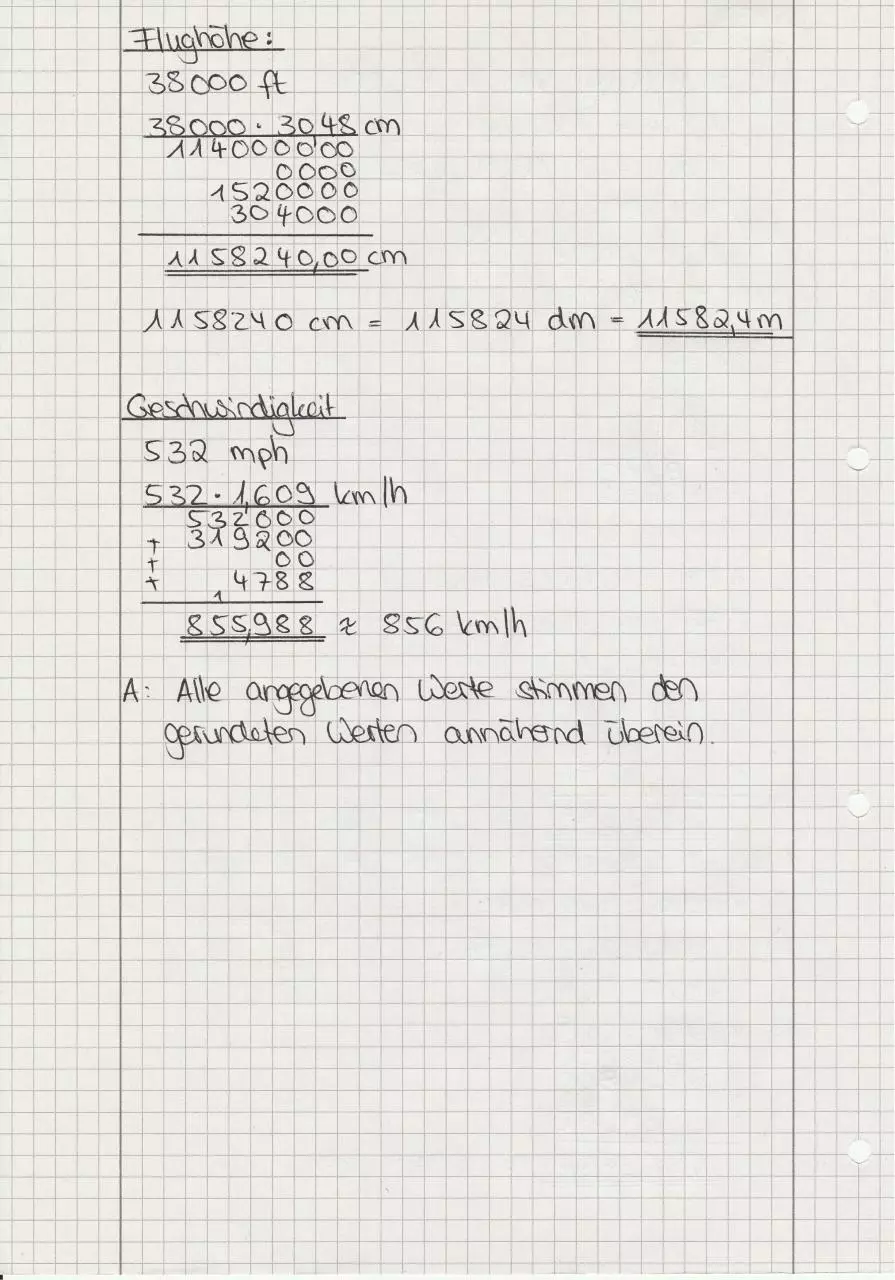 Flughöhe:
38000 ft
38000 · 3048 cm
114000000
0000
1520000
304000
1158240,00 cm
1158240 cm = 115824 dm = 11582,4m
Geschwindigkeit
532 mph
532 · 1,609 km/h
532000
+ 319200
+ 00
+ 4788
1
855,988 ≈ 856 km/h
A: Alle angegebenen Werte stimmen den
gerundeten Werten annähernd überein.